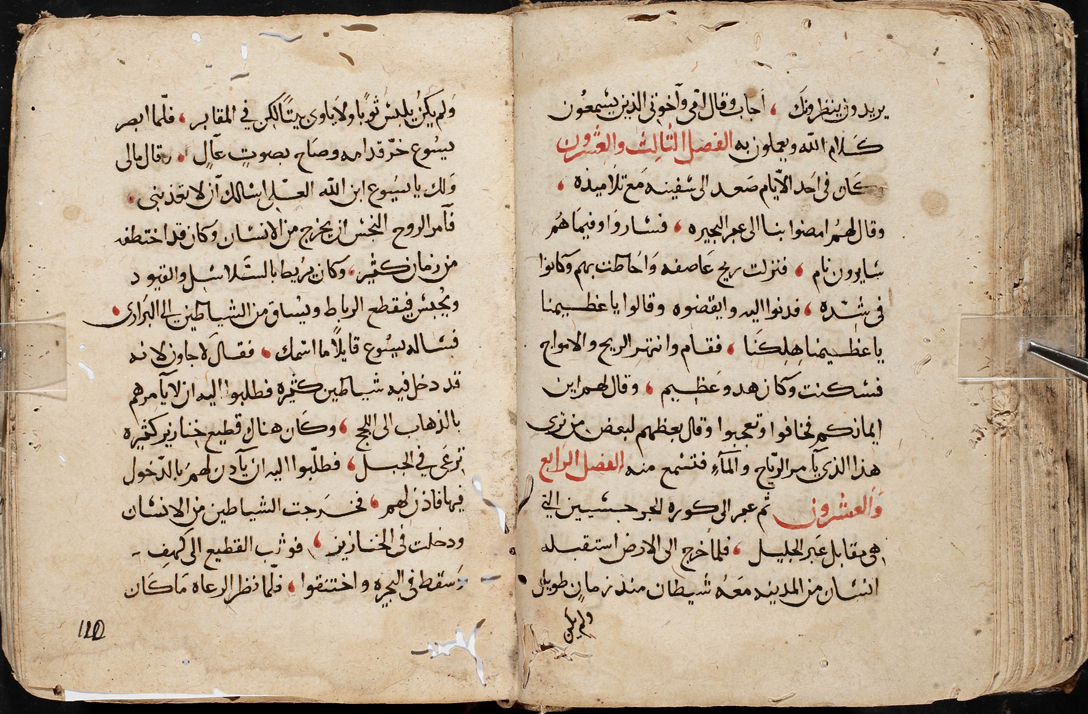 يريدون ينظرونك ، أجاب وقال امي وآخوتي الذين يسمعون
كلام الله ويعملون به الفصل الثالث والعشرون
كان في احد الآيام صعد الى سفينه مع تلاميذه ،
وقال لهم امضوا بنا الى عبر البحيره ، فساروا وفيما هم
سايرون نام ، فنزلت ريح عاصفه وآحاطت بهم وكانوا
في شده ، فدنوا اليه وايقضوه وقالوا يا عظيمنا
يا عظيمنا هلكنا ، فقام وانتهر الريح والامواج
فسكنت وكان هدو عظيم ، وقال لهم اين
ايمانكم فخافوا وتعجبوا وقال بعظهم لبعض من ترى
هذا الذي يآمر الرياح والمآء فتسمع منه الفصل الرابع
والعشرون ثم عبر الى كورة الجرجسيين التي
هي مقابل عبر الجليل ، فلما خرج الى الارض استقبله
انسان من المدينه معه شيطان منذ زمان طويل
ولم يكن
ولم يكن يلبس ثوبا ولا ياوى بيتا لكن في المقابر ، فلما ابصر
يسوع خر قدامه وصاح بصوت عال ، وقال مالى
ولك يا يسوع ابن الله العلي اسالك آن لا تعذبني ،
فآمر الروح النجس ان يخرج من الانسان وكان قد اختطفه
من زمان كثير ، وكان يربط بالسلاسل والقيود
ويحبس فيقطع الرباط ويساق من الشياطين الى البراري ،
فساله يسوع قايلا ما اسمك ، فقال لاجاون لانه
قد دخل فيه شياطين كثيره فطلبوا اليه ان لا يآمرهم
بالذهاب الى اللجج ، وكان هناك قطيع خنازير كثيره
ترعى في الجبل ، فطلبوا اليه ان يآذن لهم بالدخول
فيها فاذن لهم ، فخرجت الشياطين من الانسان
ودخلت في الخنازير ، فوثب القطيع الى كهف
وسقط في البحيره واختنقوا ، فلما نظر الرعاه ما كان